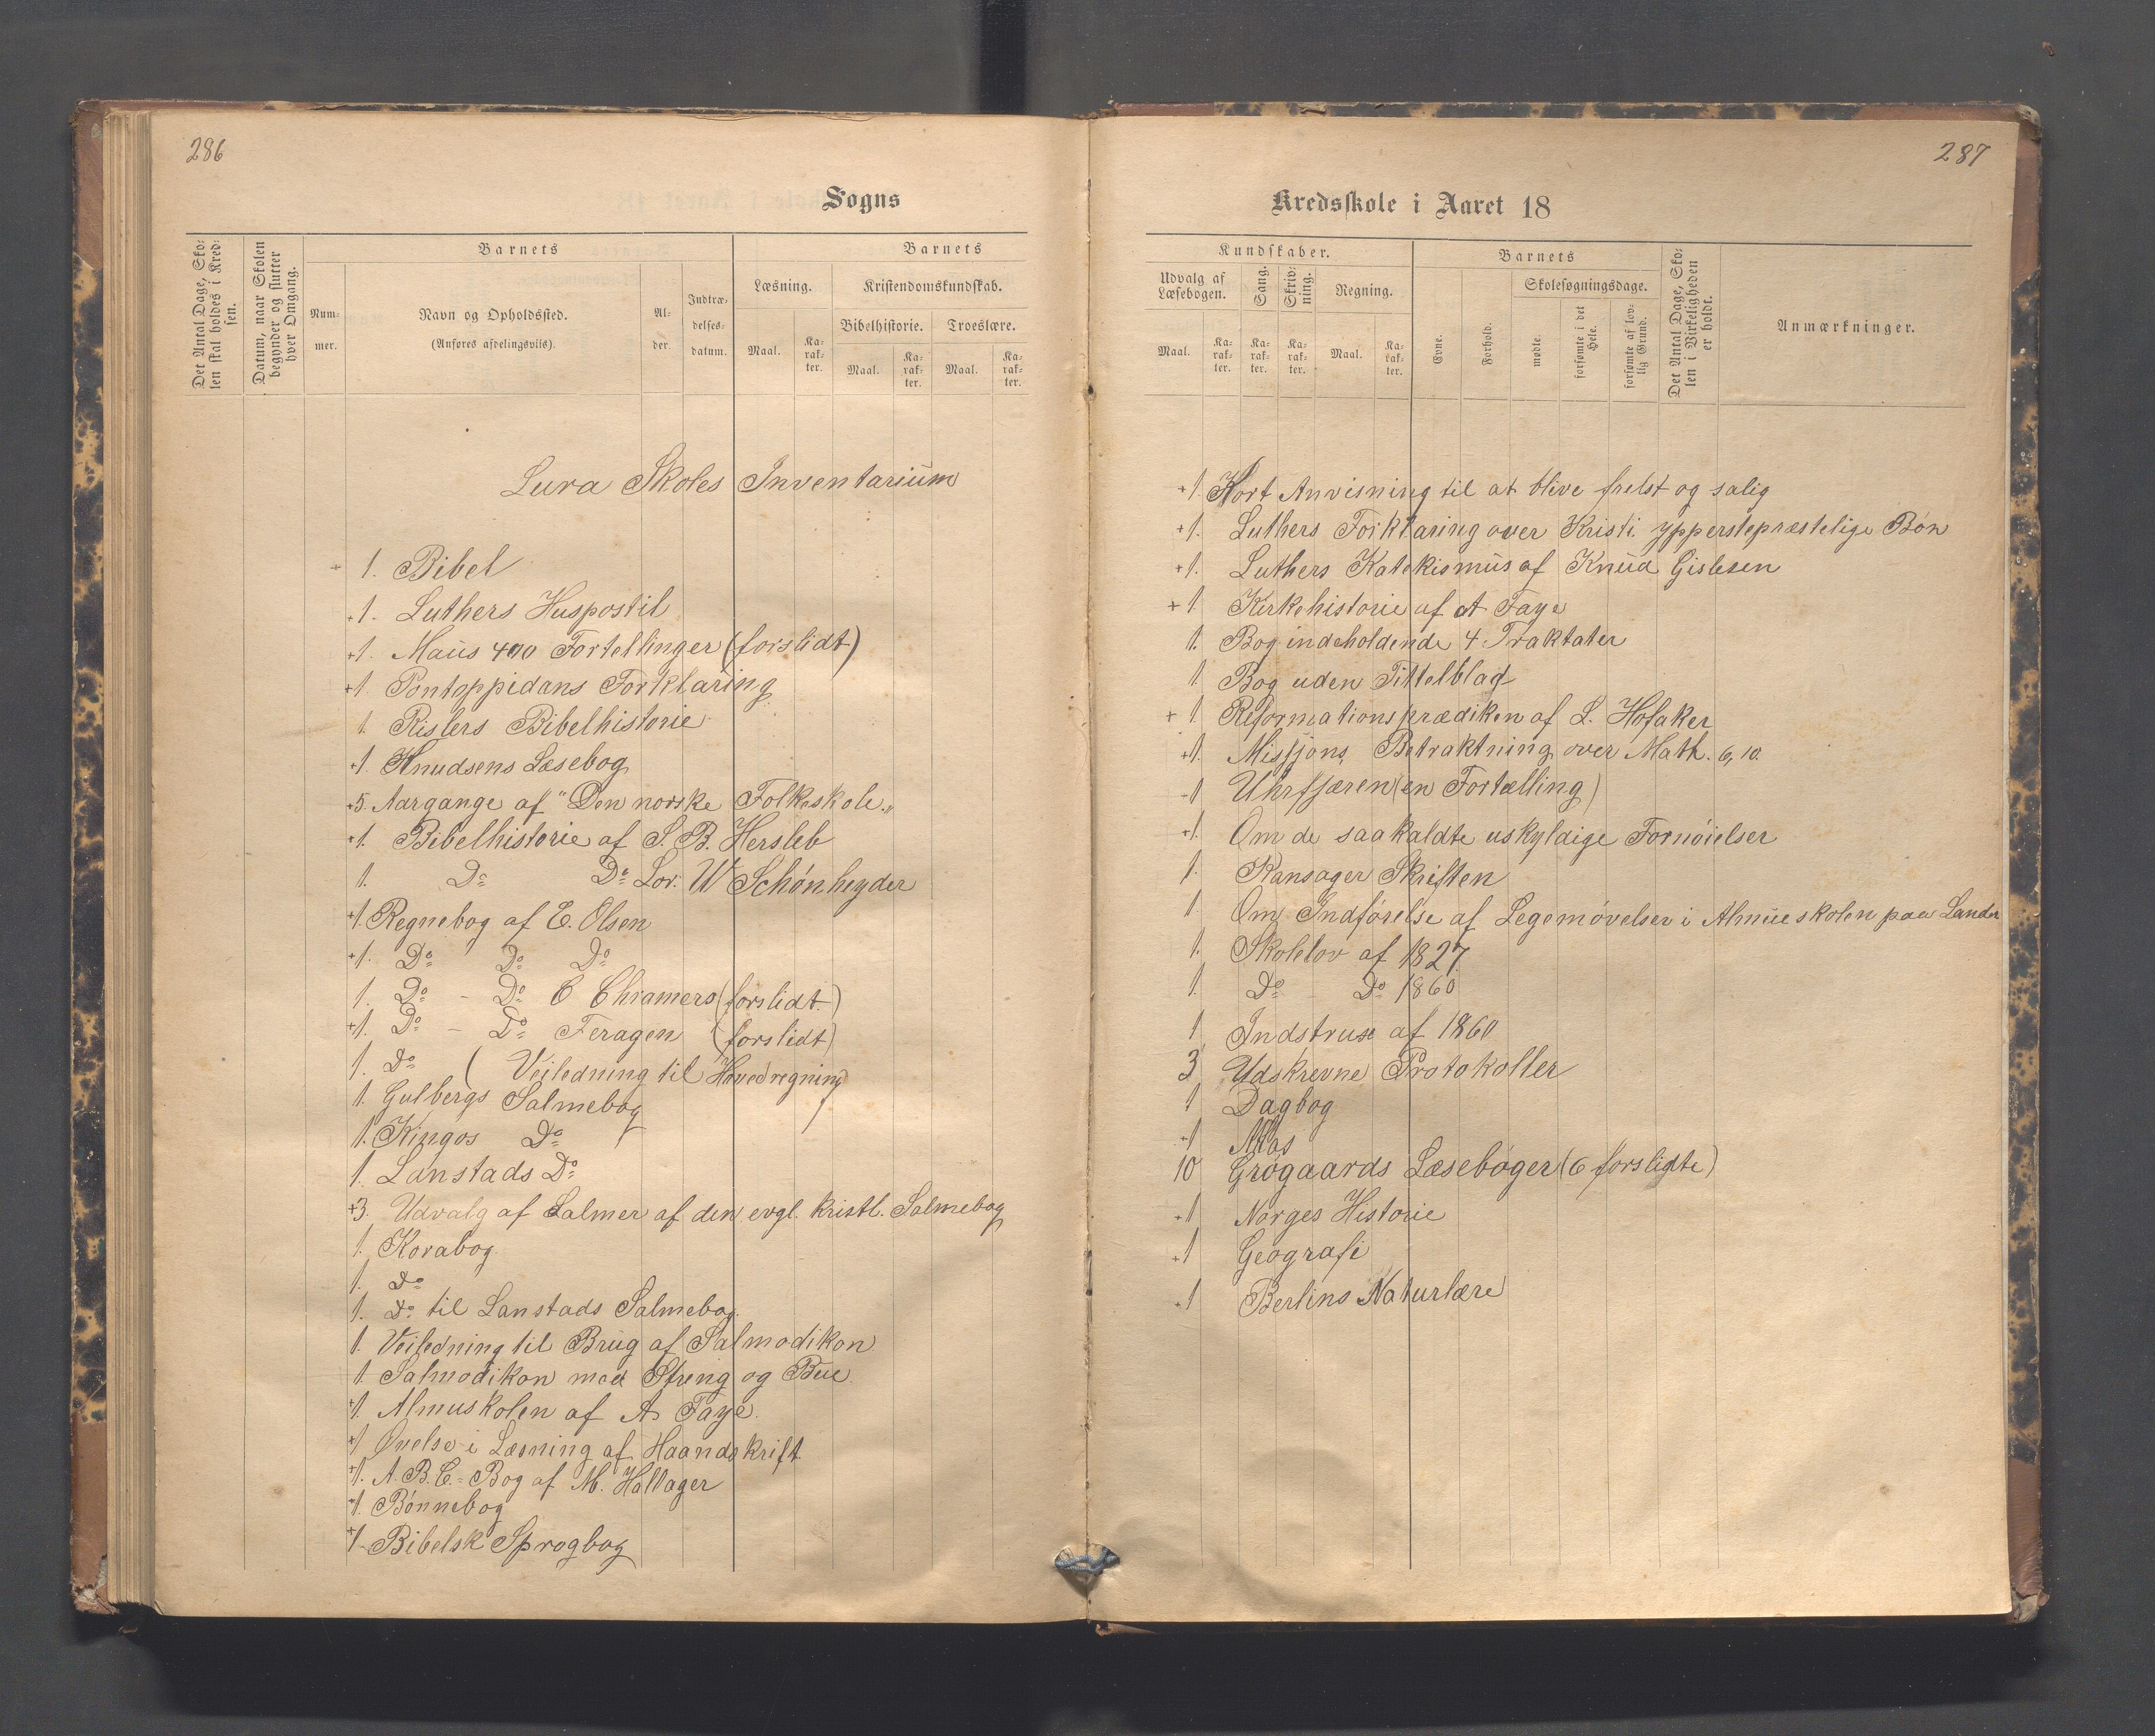 286
Sogns
Det Antal Dage, Sko-
len skal holdes i Kred-
sen.
Datum, naar Skolen
begynder og slutter
hver Omgang.
Barnets
Num-
mer.
Navn og Opholdssted.
(Anføres afdelingsvis).
Al-
der.
Indtræ-
delses-
datum.
Barnets
Læsning.
Kristendomskundskab.
Bibelhistorie.
Troeslære.
Maal.
Ka-
rak-
ter.
Maal.
Ka-
rak-
ter.
Maal.
Ka-
rak-
ter.
Lura Skoles Inventarium
+ 1. Bibel
+1. Luthers Huspostil
+1. Maus 400 Fortellinger (forslidt)
+1 Pontoppidans Forklaring
1. Rislers Bibelhistorie
+1. Knudsens Læsebog
+5. Aargange af "Den norske Folkeskole"
+1. Bibelhistorie af S. B. Hersleb
1. Do Do Lor. W Schønheyder
+1. Regnebog af E. Olsen
+1. Do Do Do
1. Do - Do C Chramers (forslidt.)
+1. Do - Do Feragen (forslidt)
1. Do ( Veiledning til Hovedregning)
1. Gulbergs Salmebog
1. Kingos Do
1. Lanstads Do
+3. Udvalg af Salmer af den evgl. kristl. Salmebog
1. Korabog
1. Do
1. Do til Lanstads Salmebog.
1. Veiledning til Brug af Salmodikon
1 Salmodikon med Streng og Bue
+1. Almuskolen af A Faye.
+1 Øvelse i Læsning af Haandskrift
+1. A.B.C.-Bog af M. Hallager
+1. Bønnebog
+1 Bibelsk Sprogbog
287
Kredsskole i Aaret 18
Kundskaber.
Udvalg af
Læsebogen.
Sang.
Skriv-
ning.
Regning.
Maal.
Ka-
rak-
ter.
Ka-
rak-
ter.
Ka-
rak-
ter.
Maal.
Ka-
rak-
ter.
Barnets
Evne.
Forhold.
Skolesøgningsdage.
mødte.
forsømte i det
Hele.
forsømte af lov-
lig Grund.
Det Antal Dage, Sko-
len i Virkeligheden
er holdt.
Anmærkninger.
+1. Kort Anvisning til at blive frelst og salig
+1. Luthers Forklaring over Kristi. ypperstepræstelige Bøn
+1. Luthers Katekismus af Knud Gislesen
+1 Kirkehistorie af A Faye
1. Bog indeholdende 4 Traktater
1 Bog uden Tittelblad
+ 1 Reformationsprædiken af L. Hofaker
+1. Missjons Betraktning over Math. 6, 10.
-1 Uhrfjæren (en Fortælling)
+1. Om de saakaldte uskyldige Fornøielser
1. Ransager Skriften
1 Om Indførelse af Legemøvelser i Almueskolen paa Landet
1. Skolelov af 1827.
1. Do - Do 1860
1 Indstrux af 1860
3 Udskrevne Protokoller
1 Dagbog
+1
10 Grøgaards Læsebøger (6 forslidte)
+1 Norges Historie
+1 Geografi
+1 Berlins Naturlære